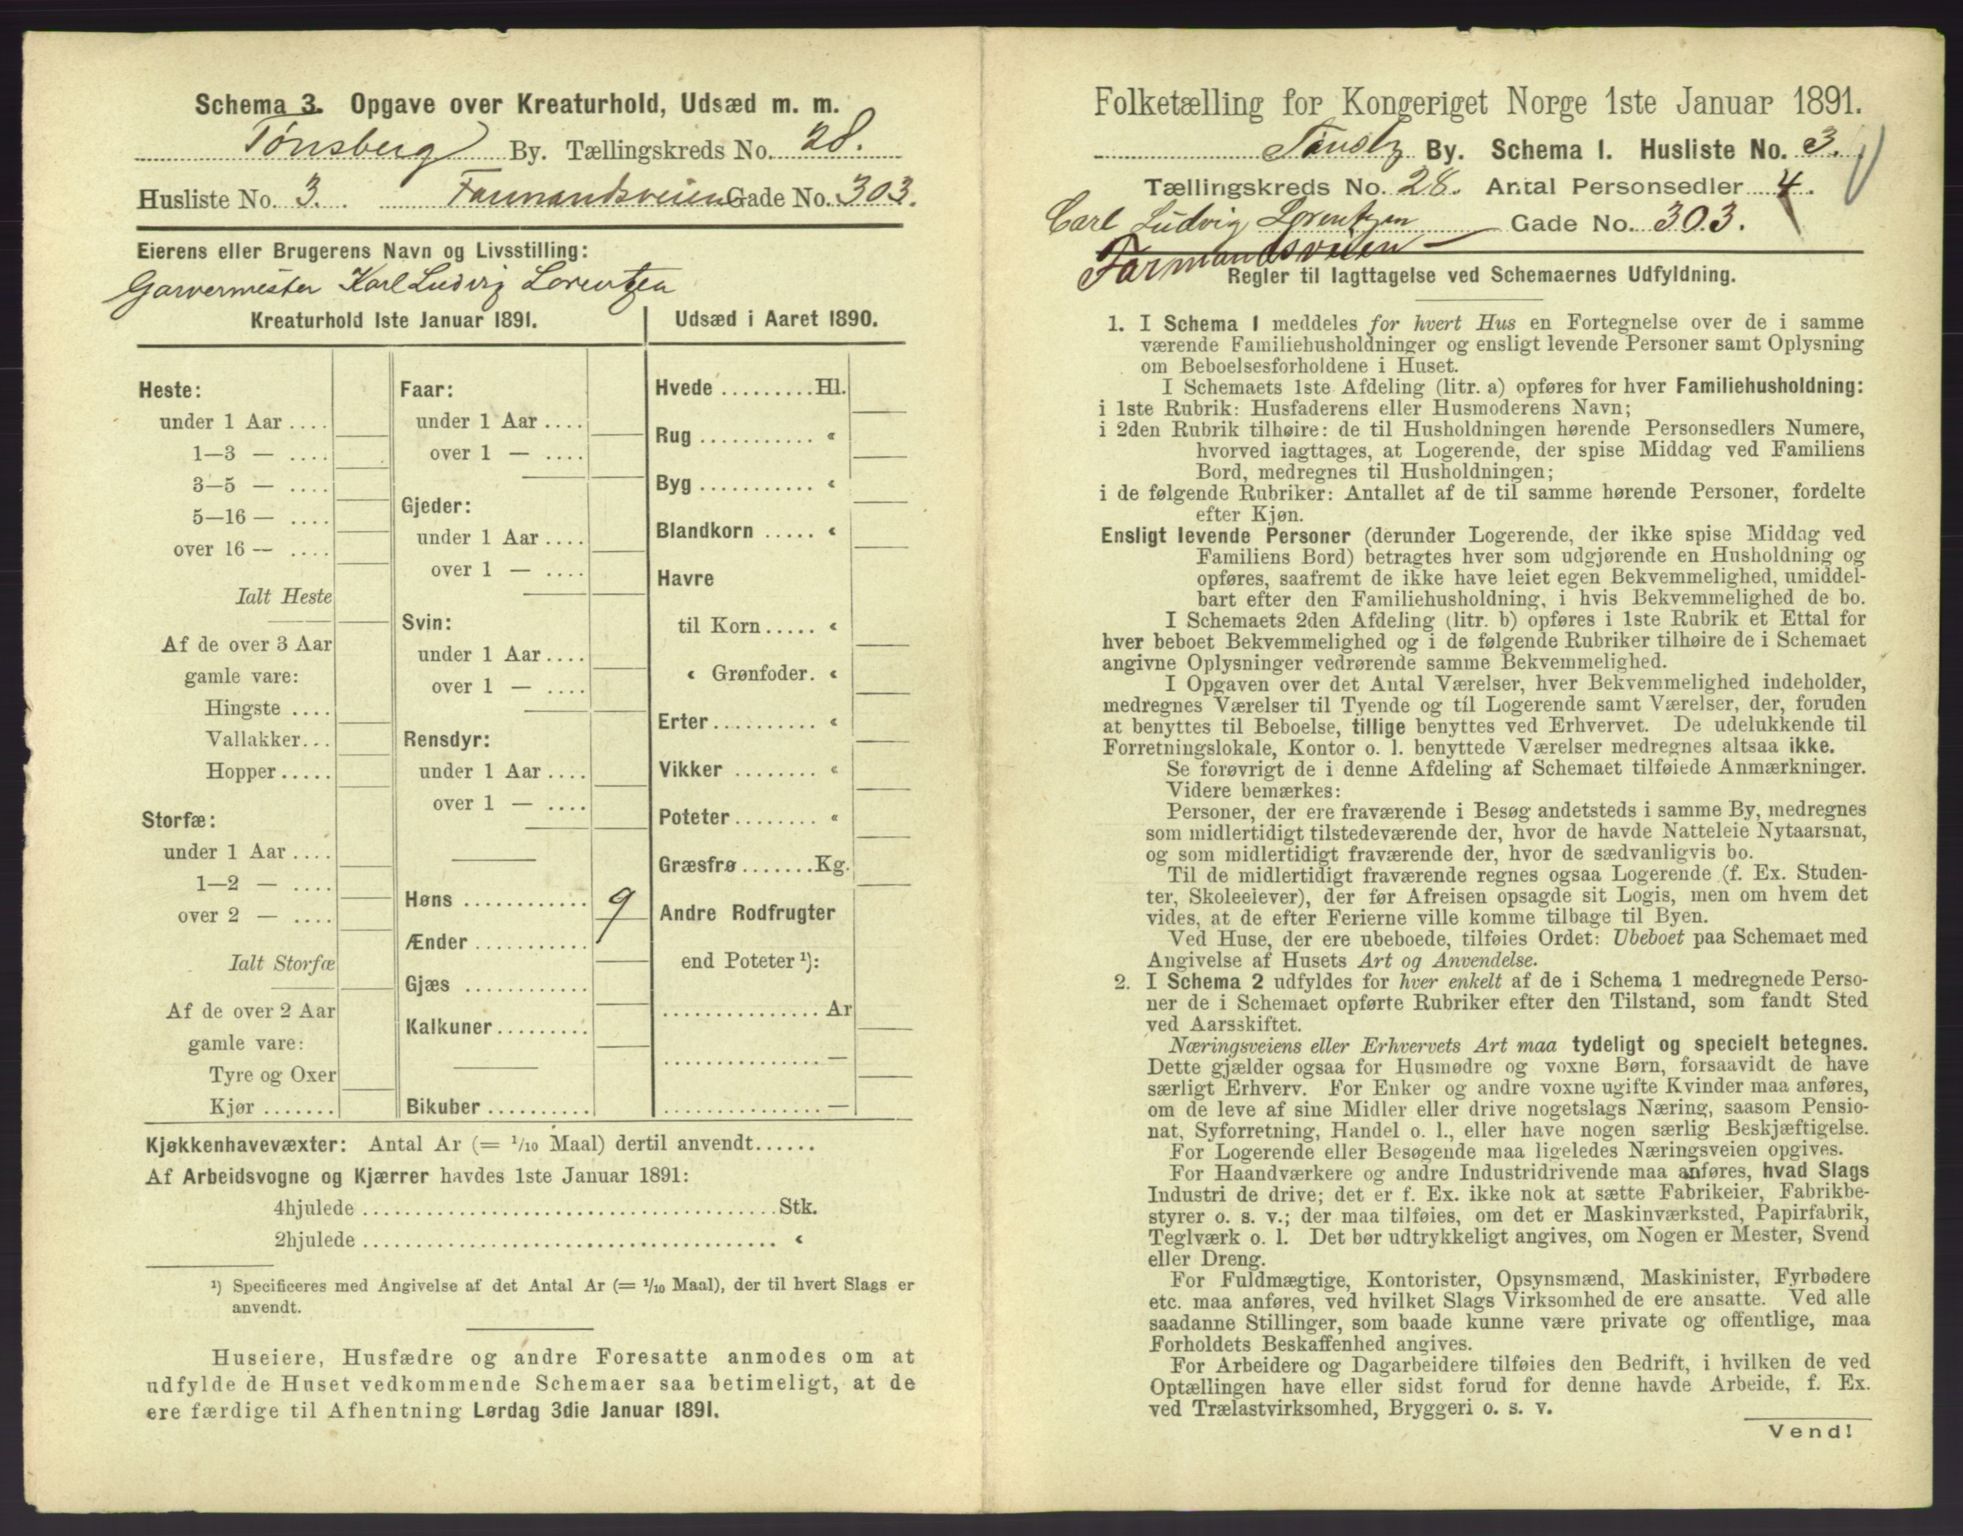 Schema 3. Opgave over Kreaturhold, Udsæd m. m.
Tønsberg By. Tællingskreds No. 28.
Husliste No. 3. Farmandsveien Gade No. 303.
Eierens eller Brugerens Navn og Livsstilling:
Garvermester Karl Ludvig Lorentzen
Kreaturhold 1ste Januar 1891.
Heste:
under 1 Aar ....
1—3 — ....
3—5 — ....
5—16 — ....
over 16 — ....
Ialt Heste
Af de over 3 Aar
gamle vare:
Hingste ....
Vallakker...
Hopper.....
Storfæ:
under 1 Aar ....
1—2 — ....
over 2 — ....
Ialt Storfæ
Af de over 2 Aar
gamle vare:
Tyre og Oxer
Kjør .......
Faar:
under 1 Aar ....
over 1 — ....
Gjeder:
under 1 Aar ....
over 1 — ....
Svin:
under 1 Aar ....
over 1 — ....
Rensdyr:
under 1 Aar ....
over 1 — ....
Høns ............ 9
Ænder ...........
Gjæs ............
Kalkuner.........
Bikuber ..........
Udsæd i Aaret 1890.
Hvede .........Hl.
Rug ........... «
Byg ........... «
Blandkorn ..... «
Havre
til Korn..... «
« Grønfoder. «
Erter.......... «
Vikker ........ «
Poteter........ «
Græsfrø .......Kg.
Andre Rodfrugter
end Poteter ¹):
............... Ar
............... —
............... —
Kjøkkenhavevæxter: Antal Ar (= 1/10 Maal) dertil anvendt......
Af Arbeidsvogne og Kjærrer havdes 1ste Januar 1891:
4hjulede ........................................Stk.
2hjulede ........................................ «
¹) Specificeres med Angivelse af det Antal Ar (= 1/10 Maal), der til hvert Slags er
anvendt.
Huseiere, Husfædre og andre Foresatte anmodes om at
udfylde de Huset vedkommende Schemaer saa betimeligt, at de
ere færdige til Afhentning Lørdag 3die Januar 1891.
Folketælling for Kongeriget Norge 1ste Januar 1891.
Tønsbg By. Schema I. Husliste No. 3.
Tællingskreds No. 28. Antal Personsedler 4.
Carl Ludvig Lorentzen Gade No. 303.
Farmandsveien
Regler til Iagttagelse ved Schemaernes Udfyldning.
1. I Schema 1 meddeles for hvert Hus en Fortegnelse over de i samme
værende Familiehusholdninger og ensligt levende Personer samt Oplysning
om Beboelsesforholdene i Huset.
I Schemaets 1ste Afdeling (litr. a) opføres for hver Familiehusholdning:
i 1ste Rubrik: Husfaderens eller Husmoderens Navn;
i 2den Rubrik tilhøire: de til Husholdningen hørende Personsedlers Numere,
hvorved iagttages, at Logerende, der spise Middag ved Familiens
Bord, medregnes til Husholdningen;
i de følgende Rubriker: Antallet af de til samme hørende Personer, fordelte
efter Kjøn.
Ensligt levende Personer (derunder Logerende, der ikke spise Middag ved
Familiens Bord) betragtes hver som udgjørende en Husholdning og
opføres, saafremt de ikke have leiet egen Bekvemmelighed, umiddel-
bart efter den Familiehusholdning, i hvis Bekvemmelighed de bo.
I Schemaets 2den Afdeling (litr. b) opføres i 1ste Rubrik et Ettal for
hver beboet Bekvemmelighed og i de følgende Rubriker tilhøire de i Schemaet
angivne Oplysninger vedrørende samme Bekvemmelighed.
I Opgaven over det Antal Værelser, hver Bekvemmelighed indeholder,
medregnes Værelser til Tyende og til Logerende samt Værelser, der, foruden
at benyttes til Beboelse, tillige benyttes ved Erhvervet. De udelukkende til
Forretningslokale, Kontor o. l. benyttede Værelser medregnes altsaa ikke.
Se forøvrigt de i denne Afdeling af Schemaet tilføiede Anmærkninger.
Videre bemærkes:
Personer, der ere fraværende i Besøg andetsteds i samme By, medregnes
som midlertidigt tilstedeværende der, hvor de havde Natteleie Nytaarsnat,
og som midlertidigt fraværende der, hvor de sædvanligvis bo.
Til de midlertidigt fraværende regnes ogsaa Logerende (f. Ex. Studen-
ter, Skoleelever), der før Afreisen opsagde sit Logis, men om hvem det
vides, at de efter Ferierne ville komme tilbage til Byen.
Ved Huse, der ere ubeboede, tilføies Ordet: Ubeboet paa Schemaet med
Angivelse af Husets Art og Anvendelse.
2. I Schema 2 udfyldes for hver enkelt af de i Schema 1 medregnede Perso-
ner de i Schemaet opførte Rubriker efter den Tilstand, som fandt Sted
ved Aarsskiftet.
Næringsveiens eller Erhvervets Art maa tydeligt og specielt betegnes.
Dette gjælder ogsaa for Husmødre og voxne Børn, forsaavidt de have
særligt Erhverv. For Enker og andre voxne ugifte Kvinder maa anføres,
om de leve af sine Midler eller drive nogetslags Næring, saasom Pensio-
nat, Syforretning, Handel o. l., eller have nogen særlig Beskjæftigelse.
For Logerende eller Besøgende maa ligeledes Næringsveien opgives.
For Haandværkere og andre Industridrivende maa anføres, hvad Slags
Industri de drive; det er f. Ex. ikke nok at sætte Fabrikeier, Fabrikbe-
styrer o. s. v.; der maa tilføies, om det er Maskinværksted, Papirfabrik,
Teglværk o. l. Det bør udtrykkeligt angives, om Nogen er Mester, Svend
eller Dreng.
For Fuldmægtige, Kontorister, Opsynsmænd, Maskinister, Fyrbødere
etc. maa anføres, ved hvilket Slags Virksomhed de ere ansatte. Ved alle
saadanne Stillinger, som baade kunne være private og offentlige, maa
Forholdets Beskaffenhed angives.
For Arbeidere og Dagarbeidere tilføies den Bedrift, i hvilken de ved
Optællingen have eller sidst forud for denne havde Arbeide, f. Ex.
ved Trælastvirksomhed, Bryggeri o. s. v.
Vend!